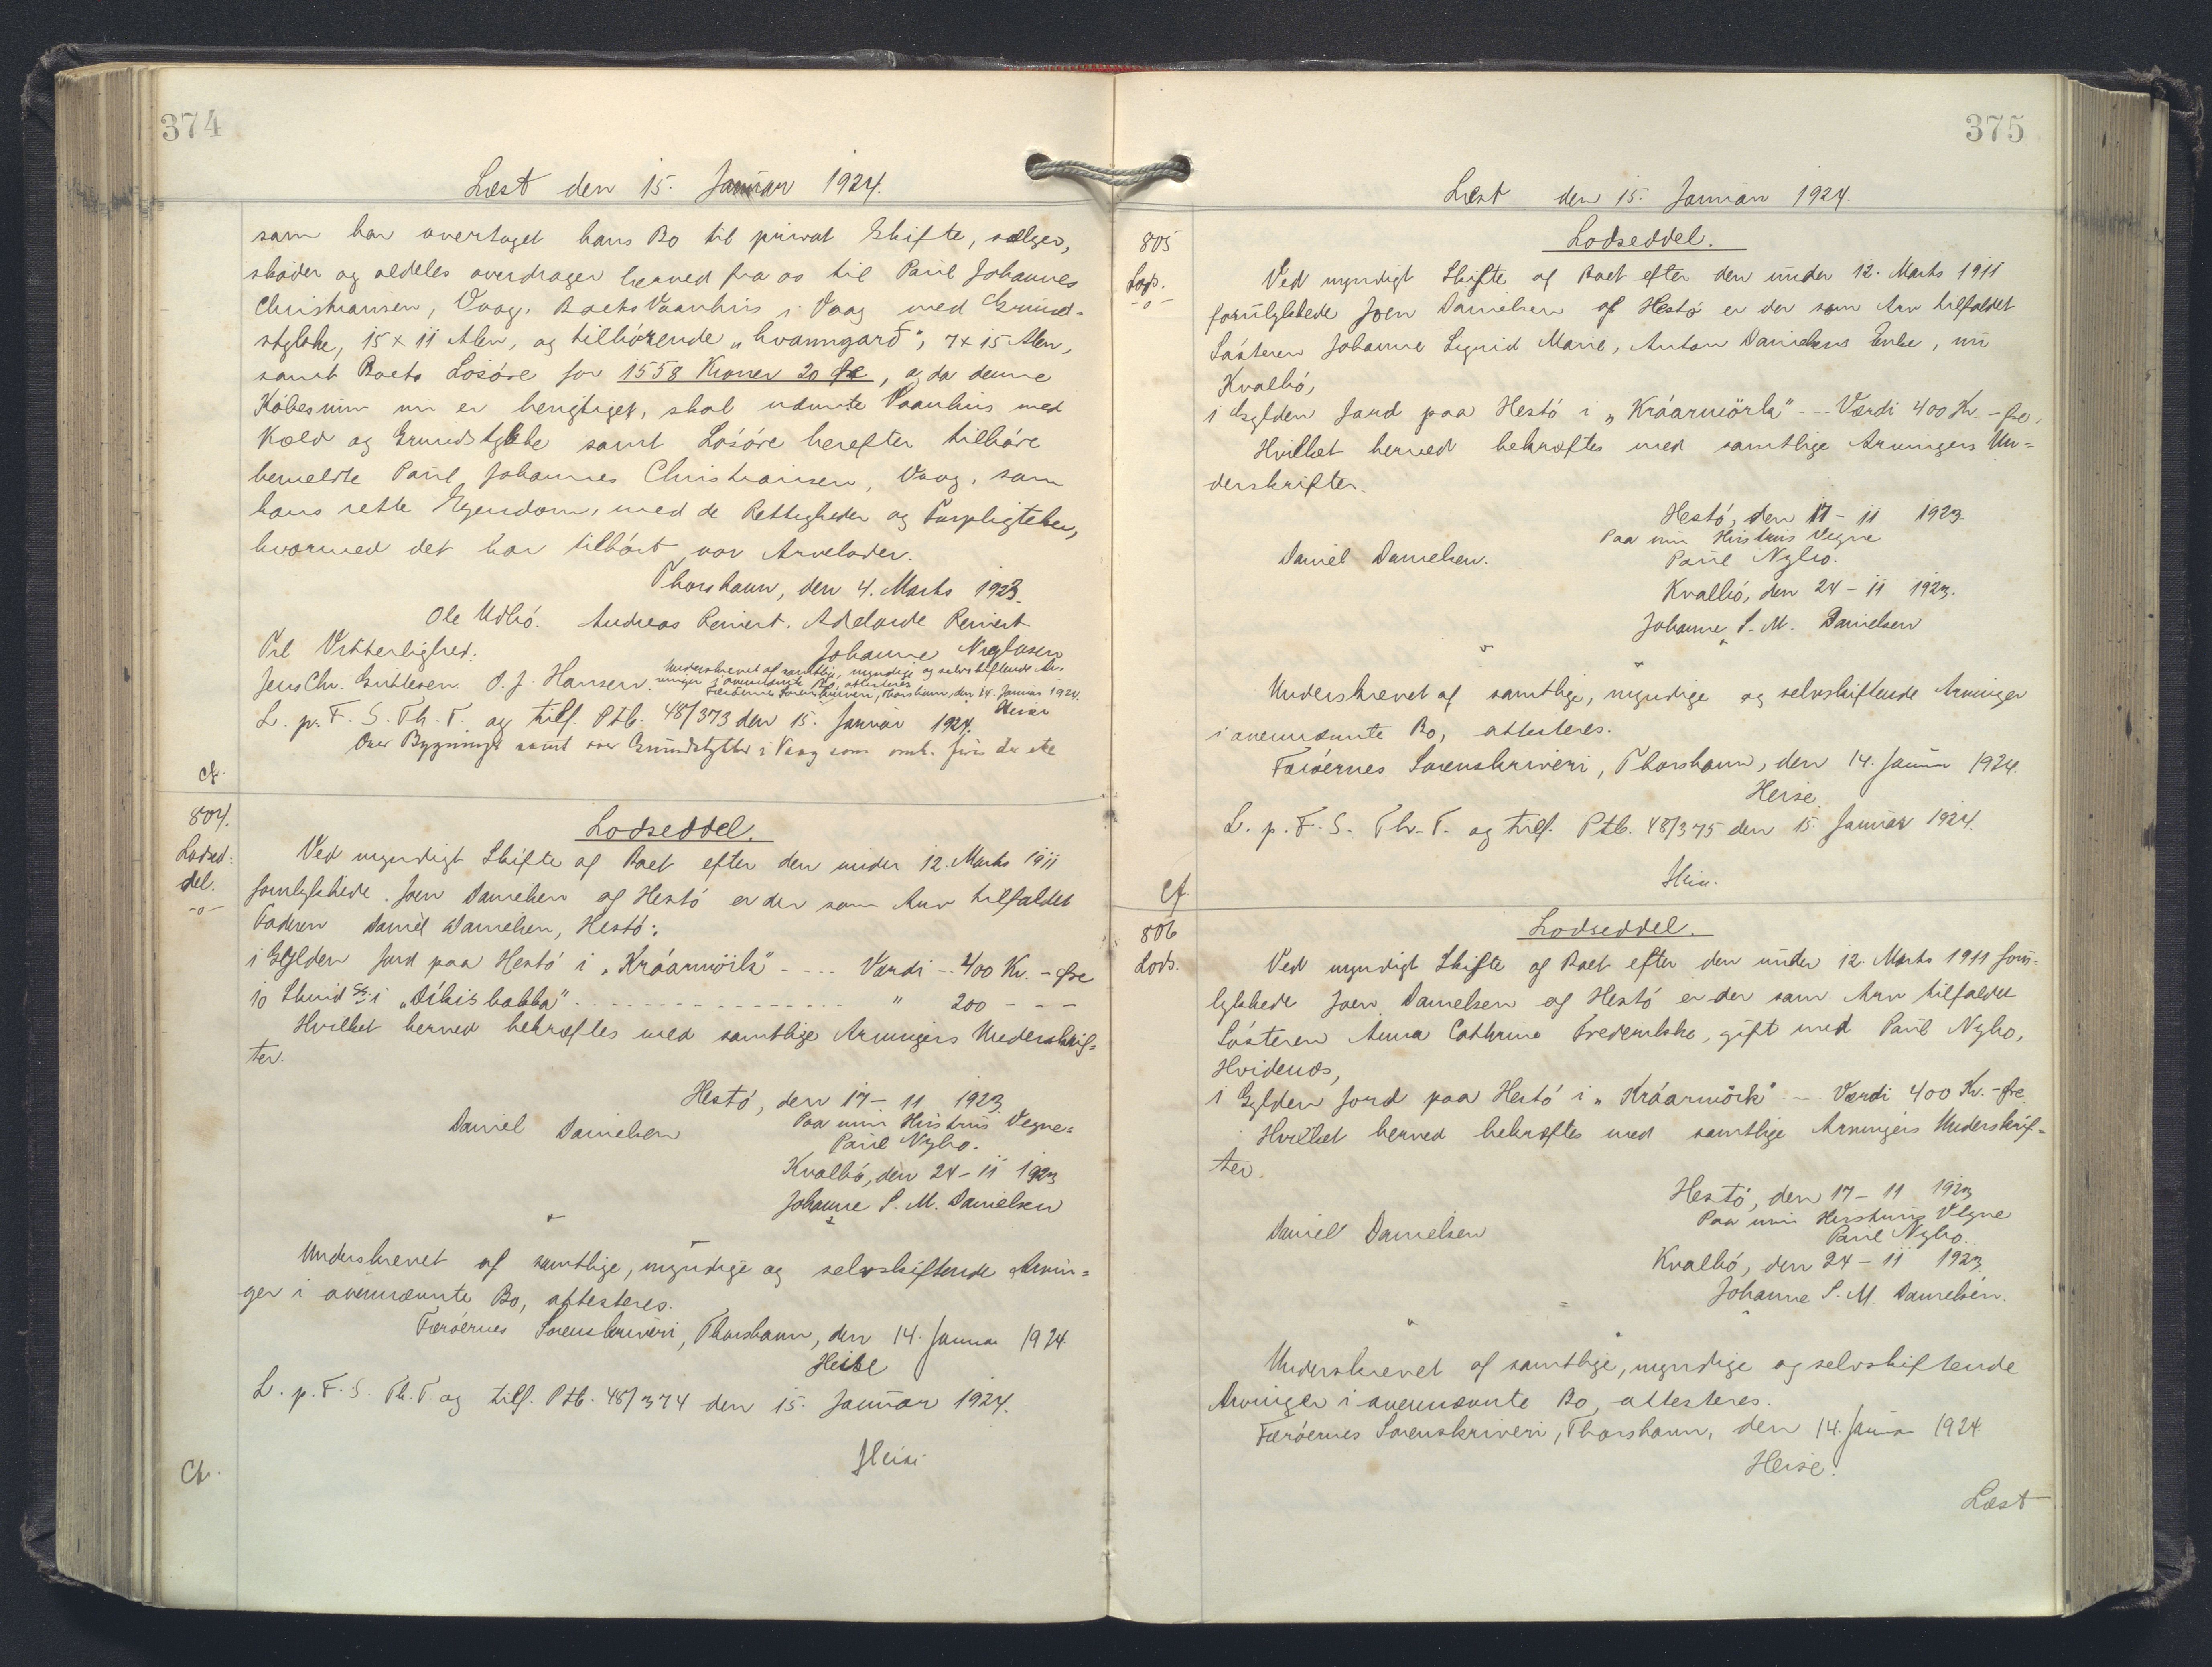 374
Læst den 15. Januar 1924.
som har overtaget hans Bo til privat Skifte, sælger,
skøder og aldeles overdrager herved fra os til Paul Johannes
Christiansen, Vaag, Boets Vaanhus i Vaag med Grund-
stykke, 15 x 11 Alen, og tilhørende "hvanngarð", 7 x 15 Alen,
samt Boets Løsøre for 1558 Kroner 20 Øre, og da denne
Købesum nu er berigtiget, skal nævnte Vaanhus med
Kæld og Grundstykke samt Løsøre herefter tilhøre
bemeldte Paul Johannes Christiansen, Vaag, som
hans rette Ejendom, med de Rettigheder og Forpligtelser,
hvormed det har tilhørt vor Arvelader.
Thorshavn, den 4. Marts 1923.
Ole Udbó. Andreas Reinert. Adelaide Reinert
Til Vitterlighed: Johanne Niclasen
Jens Chr. Guttesen. O. J. Hansen. Underskrevet af samtlige, myndige og selvskiftende Ar-
vinger i ovennævnte Bo, attesteres
Færøernes Sorenskriveri, Thorshavn, den 14. Januar 1924.
Heise
L. p. F. S. Th. T. og tilf. Ptb. 48/373 den 15. Januar 1924.
Over Bygninger samt over Grundstykket i Vaag som omh. fres der ikke
cf.
804.
Lodsed-
del.
-o-
Lodseddel.
Ved myndigt Skifte af Boet efter den under 12. Marts 1911
forulykkede Joen Danielsen af Hestó er der som Arv tilfaldet
Faderen Daniel Danielsen, Hestó:
1 Gylden Jord paa Hestó i "Króarmörk" - - - - Værdi - - 400 Kr. - Øre
10 Skind do i "Díkisbakka" - - - - - - - - - " 200 - - -
Hvilket herved bekræftes med samtlige Arvingers Underskrif-
ter.
Hestó, den 17 - 11 1923
Daniel Danielsen Paa min Hustrus Vegne:
Paul Nybo.
Kvalbó, den 24 - 11 1923
Johanne S. M. Danielsen
Underskrevet af samtlige, myndige og selvskiftende Arvin-
ger i ovennævnte Bo, attesteres.
Færøernes Sorenskriveri, Thorshavn, den 14. Januar 1924.
Heise
L. p. F. S. Th. T. og tilf. Ptb. 48/374 den 15. Januar 1924.
Heise
Cf.
375
Læst den 15. Januar 1924.
805
Lods.
-o-
Lodseddel.
Ved myndigt Skifte af Boet efter den under 12. Marts 1911
forulykkede Joen Danielsen af Hestó er der som Arv tilfaldet
Søsteren Johanne Sigrid Marie, Anton Danielsens Enke, nu
Kvalbó,
1 Gylden Jord paa Hestó i "Króarmörk" - - Værdi 400 Kr. - Øre.
Hvilket herved bekræftes med samtlige Arvingers Un-
derskrifter.
Hestó, den 17 - 11 1923.
Paa min Hustrus Vegne
Daniel Danielsen. Paul Nybo.
Kvalbó, den 24 - 11 1923.
Johanne S. M. Danielsen
Underskrevet af samtlige, myndige og selvskiftende Arvinger
i ovennævnte Bo, attesteres.
Færøernes Sorenskriveri, Thorshavn, den 14. Januar 1924.
Heise
L. p. F. S. Th. T. og tilf. Ptb. 48/375 den 15. Januar 1924.
Heise.
Cf
806
Lods.
Lodseddel.
Ved myndigt Skifte af Boet efter den under 12. Marts 1911 foru-
lykkede Joen Danielsen af Hestó er der som Arv tilfaldet
Søsteren Anna Cathrina Frederikka, gift med Paul Nybo,
Hvidenæs,
1 Gylden Jord paa Hestó i "Króarmörk" - - Værdi 400 Kr. - Øre.
Hvilket herved bekræftes med samtlige Arvingers Underskrif-
ter.
Hestó, den 17 - 11 1923
Paa min Hustrus Vegne
Daniel Danielsen Paul Nybo.
Kvalbó, den 24 - 11 1923.
Johanne S. M. Danielsen.
Underskrevet af samtlige, myndige og selvskiftende
Arvinger i ovennævnte Bo, attesteres.
Færøernes Sorenskriveri, Thorshavn, den 14. Januar 1924
Heise.
Læst